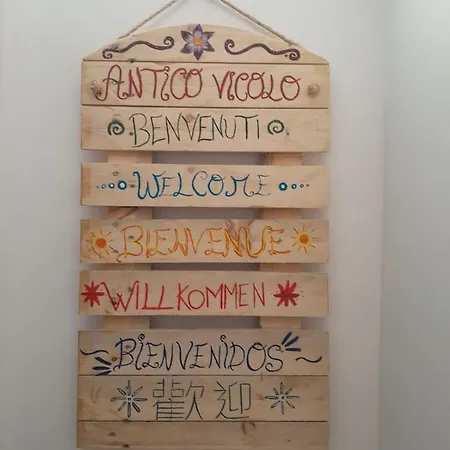 ANTICO VICOLO
BENVENUTI
WELCOME
BIENVENUE
WILLKOMMEN
BIENVENIDOS
歡迎